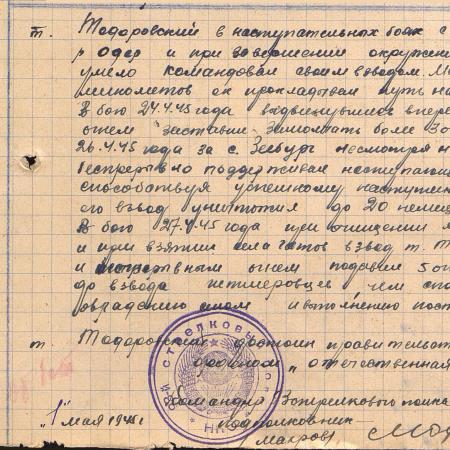 т. Тодоровский в наступательных боях с
р Одер и при завершении окружени
умело командовал своим взводом. М
минометов он прокладывал путь на
В бою 24.4.45 года выдвинувшись впере
огнем заставил замолчать более 30
26.4.45 года за с. Зебург несмотря н
беспрерывно поддерживал наступаю
способствуя успешному наступлени
его взвод уничтожил до 20 немец
В бою 27.4.45 года при очищении
и при взятии взвод т. Т
и огнем подавил 5 огн
до взвода гитлеровцев чем спо
овладению и выполнению пост
т. Тодоровский достоин правительст
орденом „отечественная
Командир стрелкового полка
подполковник
Махров
"1" мая 1945 г